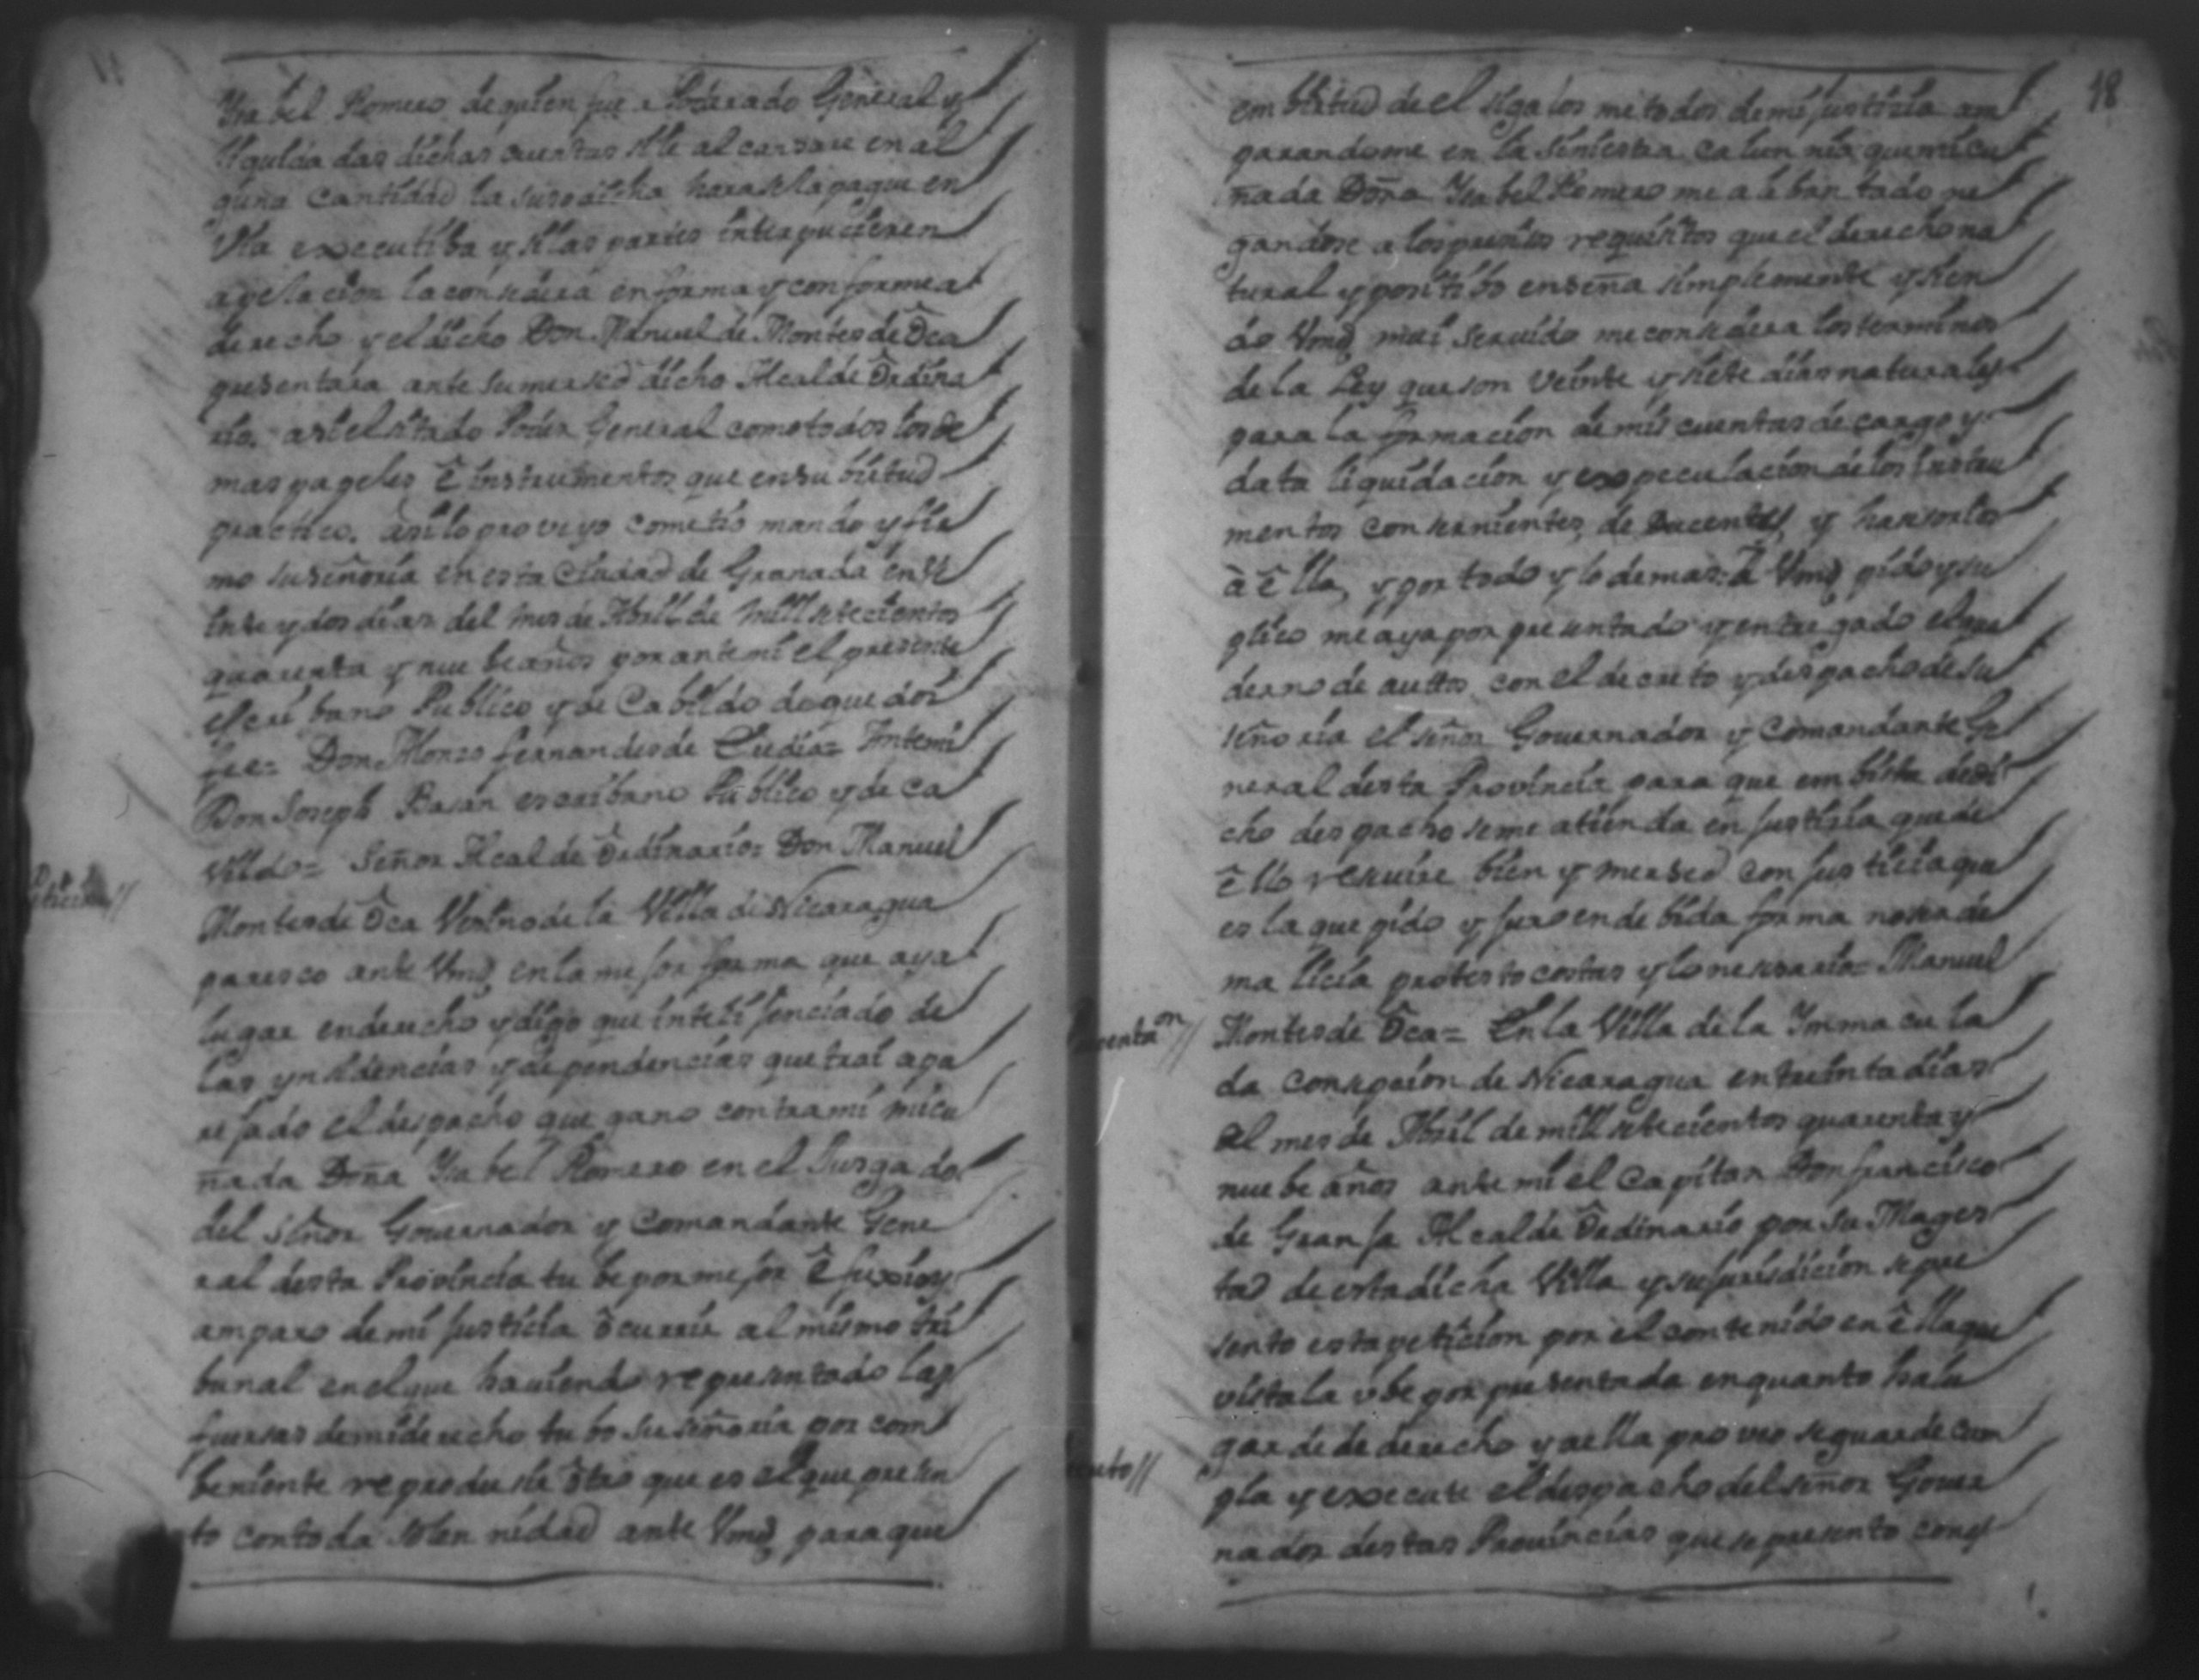 Ysabel Romero de quien fue Poderado General y
liquida das dichas cuentas si le alcansare en al
guna Cantidad la susodicha hara se la pague en
Via executiba y si las partes interpucieren
apelacion la consedera en forma y conforme a
derecho y el dicho Don Manuel de Montes de Oca
presentara ante su mersed dicho Alcalde Ordina
rio, asi el sitado Poder General como todos los de
mas papeles ê instrumentos que en su birtud
practico. asi lo proveyo cometio mando y fir
mo su señoria en esta Ciudad de Granada en ve
inte y dos dias del mes de Abril de mill setecientos
quarenta y nuebe años por ante mi el presente
escribano Publico y de Cabildo de que doi
fee= Don Alonso fernandes de Eredia= Ante mi
Don Joseph Basan escribano Publico y de Ca
vildo= Señor Alcalde Ordinario= Don Manuel
Montes de Oca Vesino de la Villa de Nicaragua
paresco ante Vmd en la mejor forma que aya
lugar en derecho y digo que intelijenciado de
las ynsidencias y dependencias que trai apa
rejado el despacho que gano contra mi mi cu
ñada Doña Ysabel Romero en el Jusgado
del Señor Gouernador y Comandante Gene
ral desta Provincia tube por mejor
amparo de mi justicia ocurrir al mismo tri
bunal en el que hauiendo representado las
fuersas de mi derecho tubo su señoria por com
beniente reprodusir otro que es el que presen
to con toda solennidad ante Vmd para que
18
em birtud de el siga los metodos de mi justicia am
parandome en la siniestra calunnia que mi cu
ñada Doña Ysabel Romero me a lebantado ne
gandose a los presisos requisitos que el derecho na
tural y positibo enseña simplemente y sien
do Vmd mui seruido me consedera los terminos
de la Ley que son veinte y siete dias naturales
para la formacion de mis cuentas de cargo y
data liquidacion y expeculacion de los instru
mentos consernientes, de Docentes, y
à êlla, y por todo y lo demas= A Vmd pido y su
plico me aya por presentado y entregado el qua
derno de auttos con el decreto y despacho de su
señoria el señor Gouernador y Comandante Ge
neral desta Provincia para que em bista de di
cho despacho se me atienda en justicia que de
êllo resiuire bien y mersed con justicia que
es la que pido y juro en debida forma no ser de
malicia protesto costas y lo nesesario= Manuel
Montes de Oca= En la Villa de la Ynmacula
da Consepcion de Nicaragua en treinta dias
del mes de Abril de mill setecientos quarenta y
nuebe años ante mi el Capitan Don francisco
de Granja Alcalde Ordinario por su Mages
tad de esta dicha Villa y su jurisdicion se pre
sento esta peticion por el contenido en êlla que
vista la vbe por presentada en quanto ha lu
gar de de derecho y a ella proveo se guarde cum
pla y execute el despacho del señor Gouer
nador destas Prouincias que se presento con es